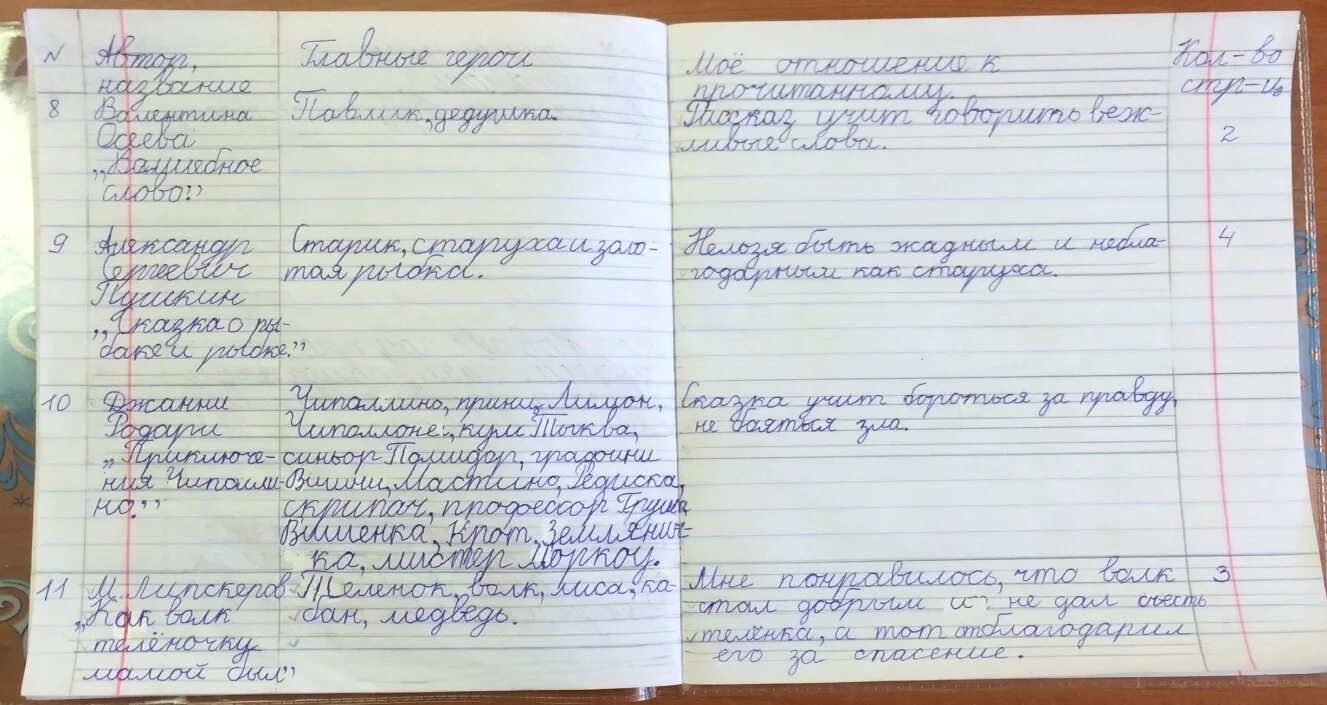 N Автор, Главные герои Моё отношение к Кол-во
название прочитанному. стр-ц
8 Валентина Павлик, дедушка. Рассказ учит говорить веж-
Осеева ливые слова. 2
„Волшебное
слово."
9 Александр Старик, старуха и золо- Нельзя быть жадным и небла- 4
Сергеевич тая рыбка. годарным как старуха.
Пушкин
„Сказка о ры-
баке и рыбке."
10 Джанни Чиполлино, принц Лимон, Сказка учит бороться за правду,
Родари Чиполлоне, кум Тыква, не бояться зла.
„Приключе- синьор Помидор, графини
ния Чиполли- Вишни, Мастино, Редиска,
но." скрипач, профессор Груша
Вишенка, Крот, Землянич-
ка, мистер Моркоу.
11 М. Липскеров Теленок, волк, лиса, ка- Мне понравилось, что волк 3
„Как волк бан, медведь. стал добрым и не дал съесть
телёночку телёнка, а тот отблагодарил
мамой был" его за спасение.